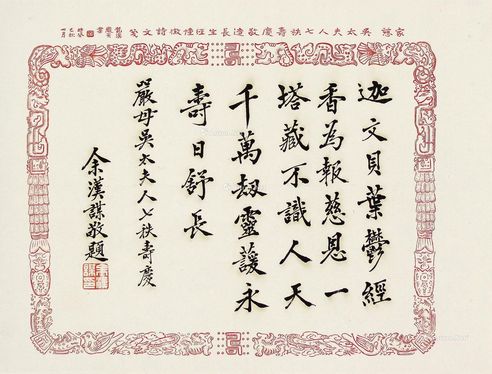 家慈吳太夫人七秩壽慶敬造長生徵詩文箋
迦文貝葉鬱經
香為報慈恩一
塔藏不識人天
千萬劫靈護永
壽日舒長
嚴母吳太夫人七秩壽慶
余漢謀敬題